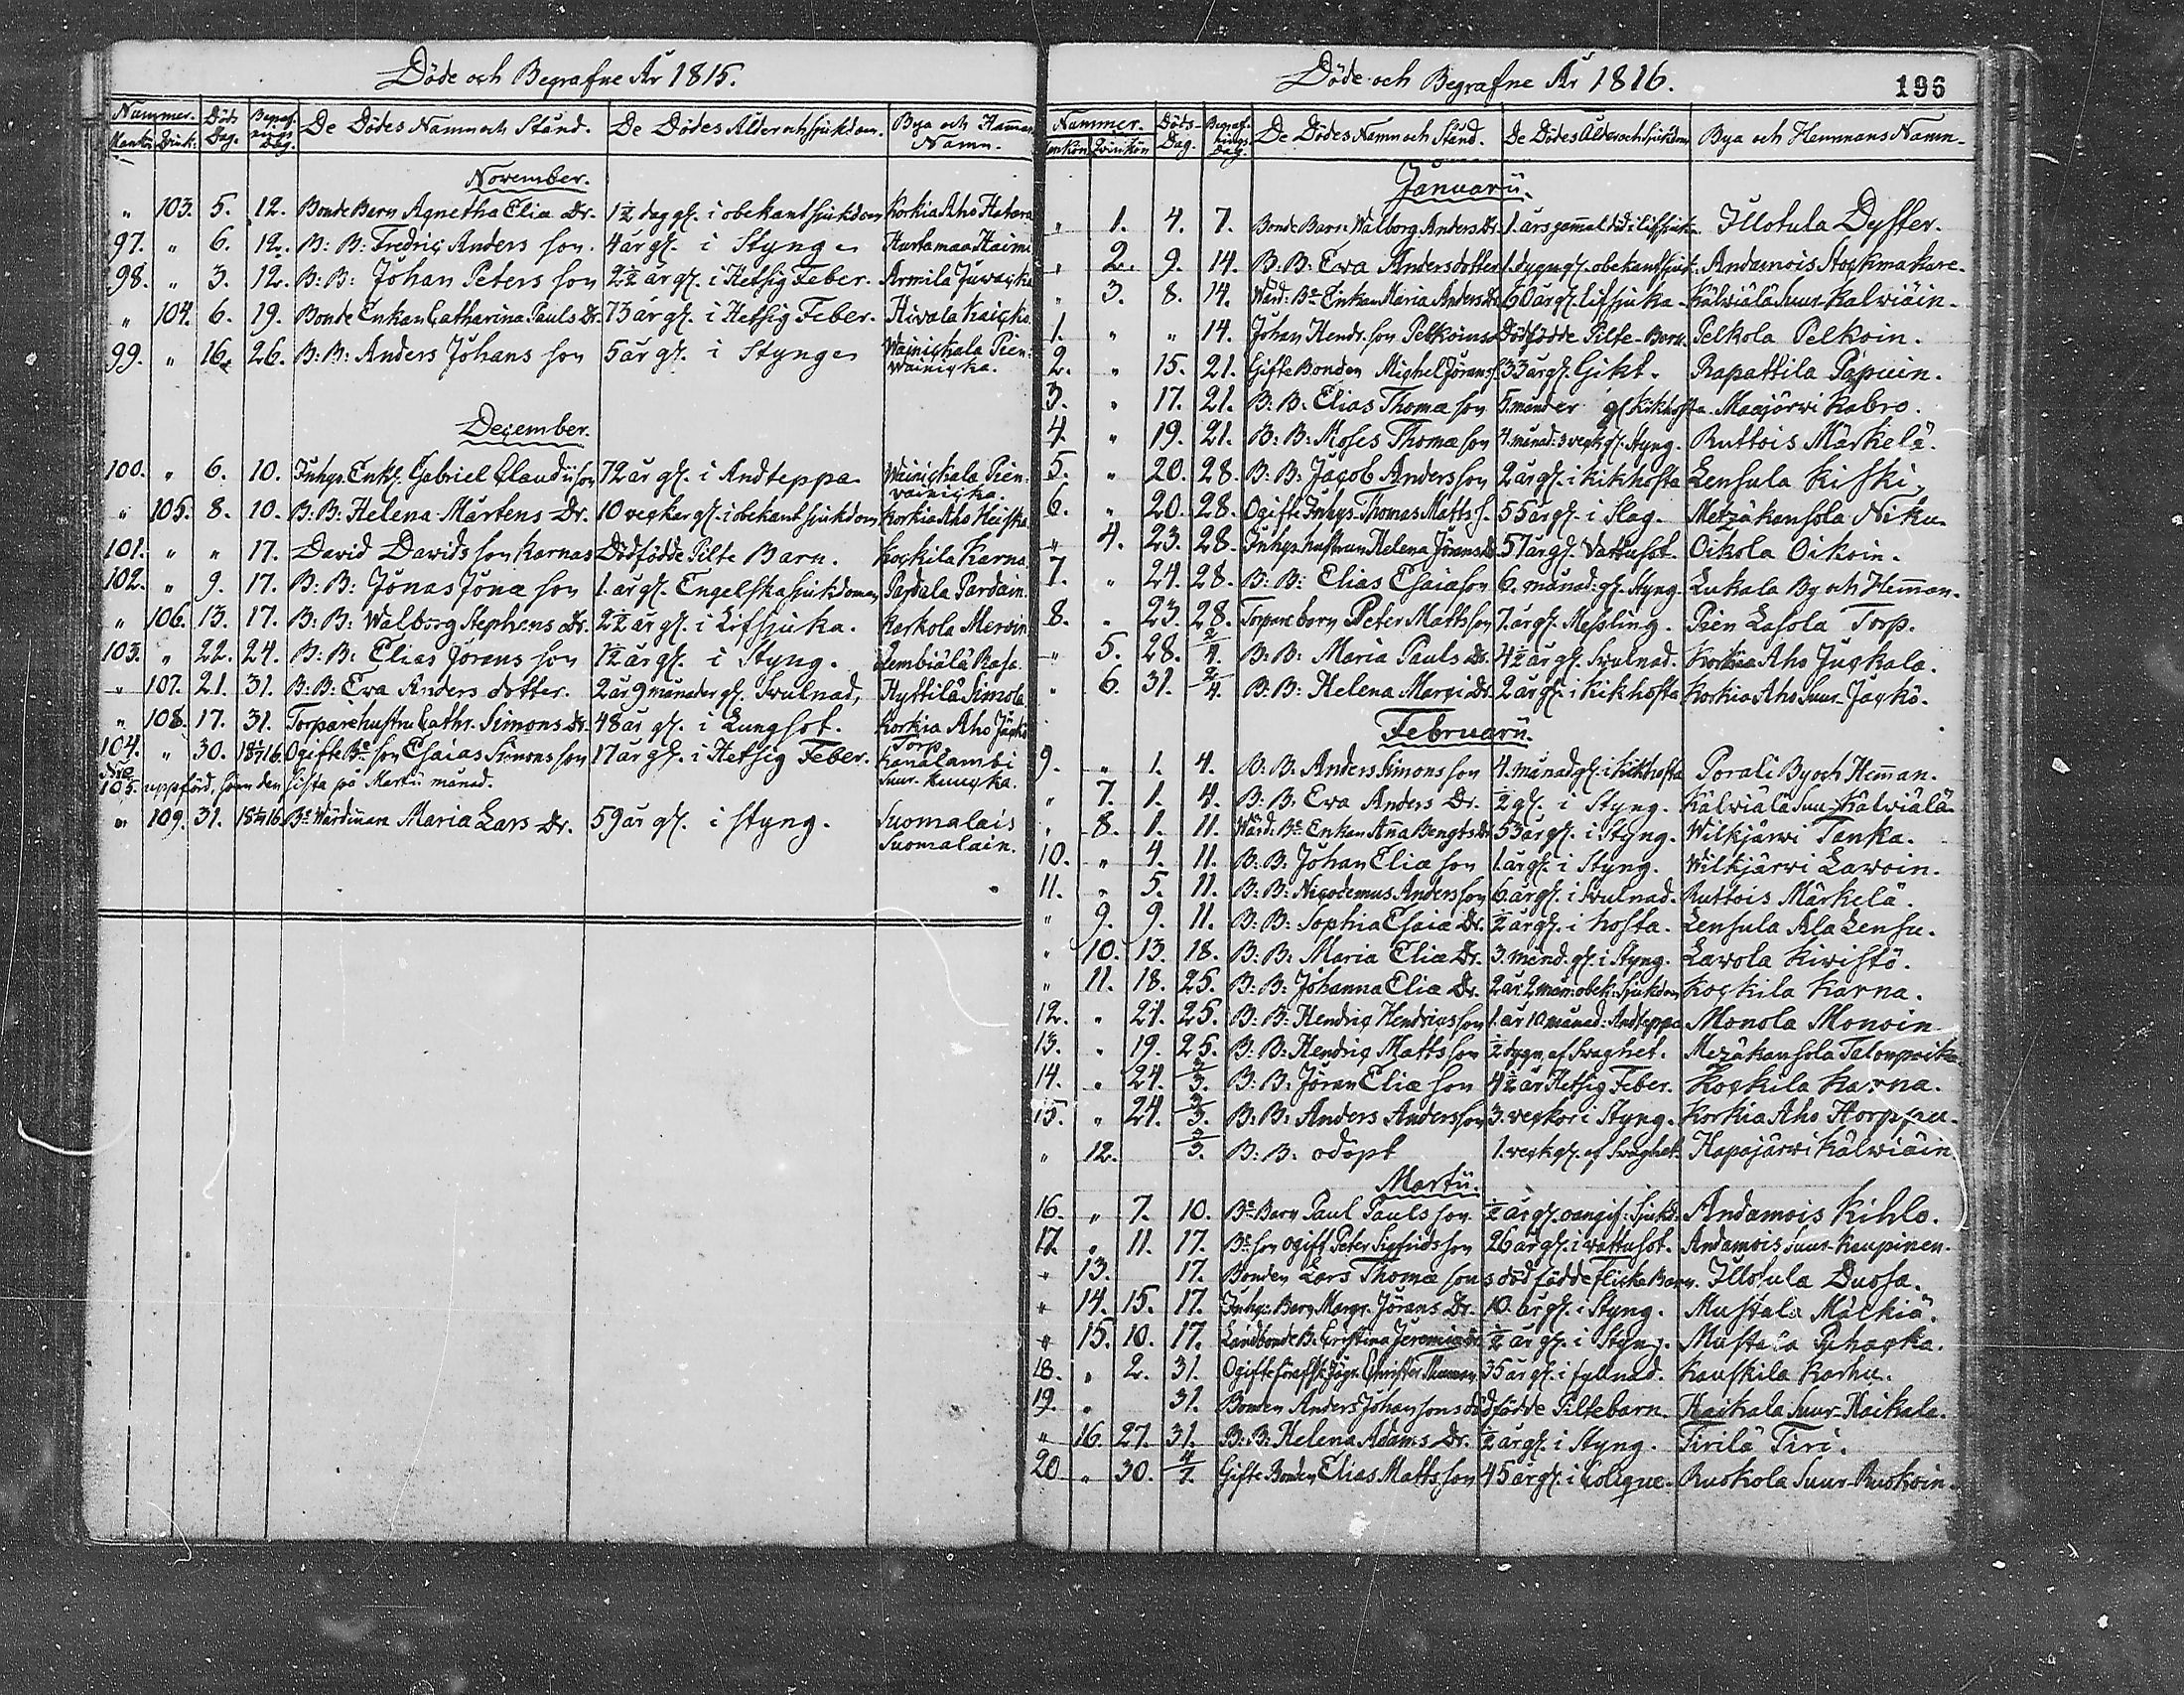 Döde och Begrafne År 1815.
Nummer. Döds Dag. Begraf- nings Dag. De Dödes Namn och Stånd. De Dödes Ålder och Sjukdom. Bya och Hemman Namn.
Mankön Qvink:
November.
" 103. 5. 12. Bonde Barn Agnetha Eliæ Dr. 1½ dag gl. i obekant sjukdom Korkia Aho Hatara
97. " 6. 12. B: B: Fredric Anders son. 4 år gl. i Styng Hurtamaa Haimi
98. " 3. 12. B: B: Johan Peters son 2½ år gl. i Hetsig Feber. Armila Juvacka
" 104. 6. 19. Bonde Enkan Catharina Pauls Dr. 73 år gl. i Hetsig Feber. Hivala Kaicko
99. " 16. 26. B: B: Anders Johans son 5 år gl. i Styng Wainickala Pien
Wainicka.
December.
100. " 6. 10. Inhys. Enkl. Gabriel Claudii son 72 år gl. i Andteppa Wainickala Pien
Vainicka.
" 105. 8. 10. B: B: Helena Mårtens Dr. 10 veckor gl. i obekant sjukdom Korkia Aho Heiska
101. " " 17. David Davids son Karnas Dödfödde Pilte Barn. Kockila Karna
102. " 9. 17. B: B: Jonas Jonæ son 1. år gl. Engelska sjukdomen Pardala Pardain
" 106. 13. 17. B: B: Walborg Stephens Dr. 2½ år gl. i Lifsjuka. Karkola Mervin
103. " 22. 24. B: B: Elias Jörans son 1½ år gl. i Styng. Lembiälä Rasa
" 107. 21. 31. B: B: Eva Anders dotter. 2 år 9 månader gl. Svulnad, Hyttilä Simola
" 108. 17. 31. Torpare hustru Cathr. Simons Dr. 48 år gl. i Lungsot. Korkia Aho Jäckö
Torp
104. " 30. 18 1/7 16. Ogifte Be son Esaias Simons son 17 år gl. i Hetsig Feber. Kanalambi
Suur-Kuucka.
Nro
105. uppförd, såsom den sista på Martii månad.
" 109. 31. 18 1/7 16. Be Wärdinnan Maria Lars Dr. 59 år gl. i styng. Suomalais
Suomalain.
Döde och Begrafne År 1816.
196
Nummer. Döds- Dag. Begraf- nings Dag. De Dödes Namn och Stånd. De Dödes Ålder och Sjukdom Bya och Hemmans Namn.
Mankön Qvinkön
Januarii.
" 1. 4. 7. Bonde Barn Walborg Anders Dr. 1. års gammal död i lifsjuk. Illotula Dyster.
" 2. 9. 14. B: B: Eva Andersdotter 1. dygn gl. obekant sjuk: Andamois Stockmakare.
" 3. 8. 14. Wärd: Be Enkan Maria Anders Dr. 60 år gl. lifsjuka Kälwiälä Suur-Kalwiäin.
1. " " 14. Johan Hendr. son Pelkoins Dödfödde Pilte-Barn. Pelkola Pelkoin.
2. " 15. 21. Gifte Bonden Michel Jörans s. 33 år gl. Gikt. Rapattila Papuin.
3. " 17. 21. B: B: Elias Thomæ son 5. månder gl. Kikhosta. Maajärvi Kabro.
4. " 19. 21. B: B: Moses Thomæ son 4. månad: 3 veck. gl. Styng. Ruttois Märkelä.
5. " 20. 28. B: B: Jacob Anders son 2 år gl. i Kikhosta Lensula Kiski.
6. " 20. 28. Ogifte Inhys. Thomas Matts s. 55 år gl. i Slag. Metzäkansola Niku
" 4. 23. 28. Inhys hustrun Helena Jörans Dr. 57 år gl. Vattusot. Oikola Oikoin.
7. " 24. 28. B: B: Elias Esaiæ son 6. månad: gl. Styng. Lukala By och Hemman.
8. " 23. 28. Torpare barn Peter Matts son 7. år gl. Messling. Pien Lasola Torp.
" 5. 28. 2/4. B: B: Maria Pauls Dr. 4½ år gl. Svulnad. Korkia Aho Juckala.
" 6. 31. 2/4. B: B: Helena Marci Dr. 2 år gl. i Kikhosta Korkia Aho Suur-Jäckö.
Februarii.
9. " 1. 4. B: B: Anders Simons son 4. månad gl. i Kikhosta Porali By och Hemman.
" 7. 1. 4. B: B: Eva Anders Dr. ½ gl. i Styng. Kälwiälä Suu-Kälwiälä
" 8. 1. 11. Wärd: Be Enkan Anna Bengts Dr. 53 år gl. i Styng. Wilkjärvi Tanka.
10. " 4. 11. B: B: Johan Eliæ son 1. år gl. i Styng. Wilkjärvi Lavoin.
11. " 5. 11. B: B: Nicodemus Anders son 6. år gl. i Svulnad. Ruttois Märkelä.
" 9. 9. 11. B: B: Sophia Esaiæ Dr. ½ år gl. i hosta. Lensula Ala Lensu.
" 10. 13. 18. B: B: Maria Eliæ Dr. 3. månd. gl. i Styng. Lavola Kivistö.
" 11. 18. 25. B: B: Johanna Eliæ Dr. 2 år 2 mån: obek: Sjukdom Kockila Karna.
12. " 21. 25. B: B: Hendric Hendrics son 1. år 10 månad: Andteppa Monola Monoin
13. " 19. 25. B: B: Hendric Matts son ½ dygn af Svaghet. Mezäkansola Talonpoika
14. " 24. 3/3. B: B: Jöran Eliæ son 4½ år Hetsig Feber. Kockila Karna.
15. " 24. 3/3. B: B: Anders Anders son 3. veckor i Styng. Korkia Aho Horppu
" 12. 3/3. B: B: odöpt 1. veck gl. af Svaghet. Hapajärvi Kälwiäin
Martii.
16. " 7. 10. Be Barn Paul Pauls son ½ år gl. oangif: Sjukd. Andamois Kihlo.
17. " 11. 17. Be son ogift Peter Sigfrids son 26 år gl. i vattusot. Andamois Suur-Kaupinen.
" 13. 17. Bonden Lars Thomæ sons dödfödde Flicke Barn. Illotula Duosa.
" 14. 15. 17. Inhy: Barn Margr. Jörans Dr. 10. år gl. i Styng. Mustala Mälkiä.
" 15. 10. 17. Landbonde B: Cristina Jeremiæ Dr. ½ år gl. i Styng. Mustala Pyhacka.
18. " 2. 31. Ogifte Christer 35 år gl. i Kauskila Karhu.
19. " 31. Bonden Anders Johans sons dödfödde Piltebarn. Haikala Suur-Haikala.
" 16. 27. 31. B: B: Helena Adams Dr. ½ år gl. i Styng. Tirilä Tiri.
20 " 30. 4/7. Gifte Bonden Elias Matts son 45 år gl. i Colique. Ruokola Suur-Ruokoin.